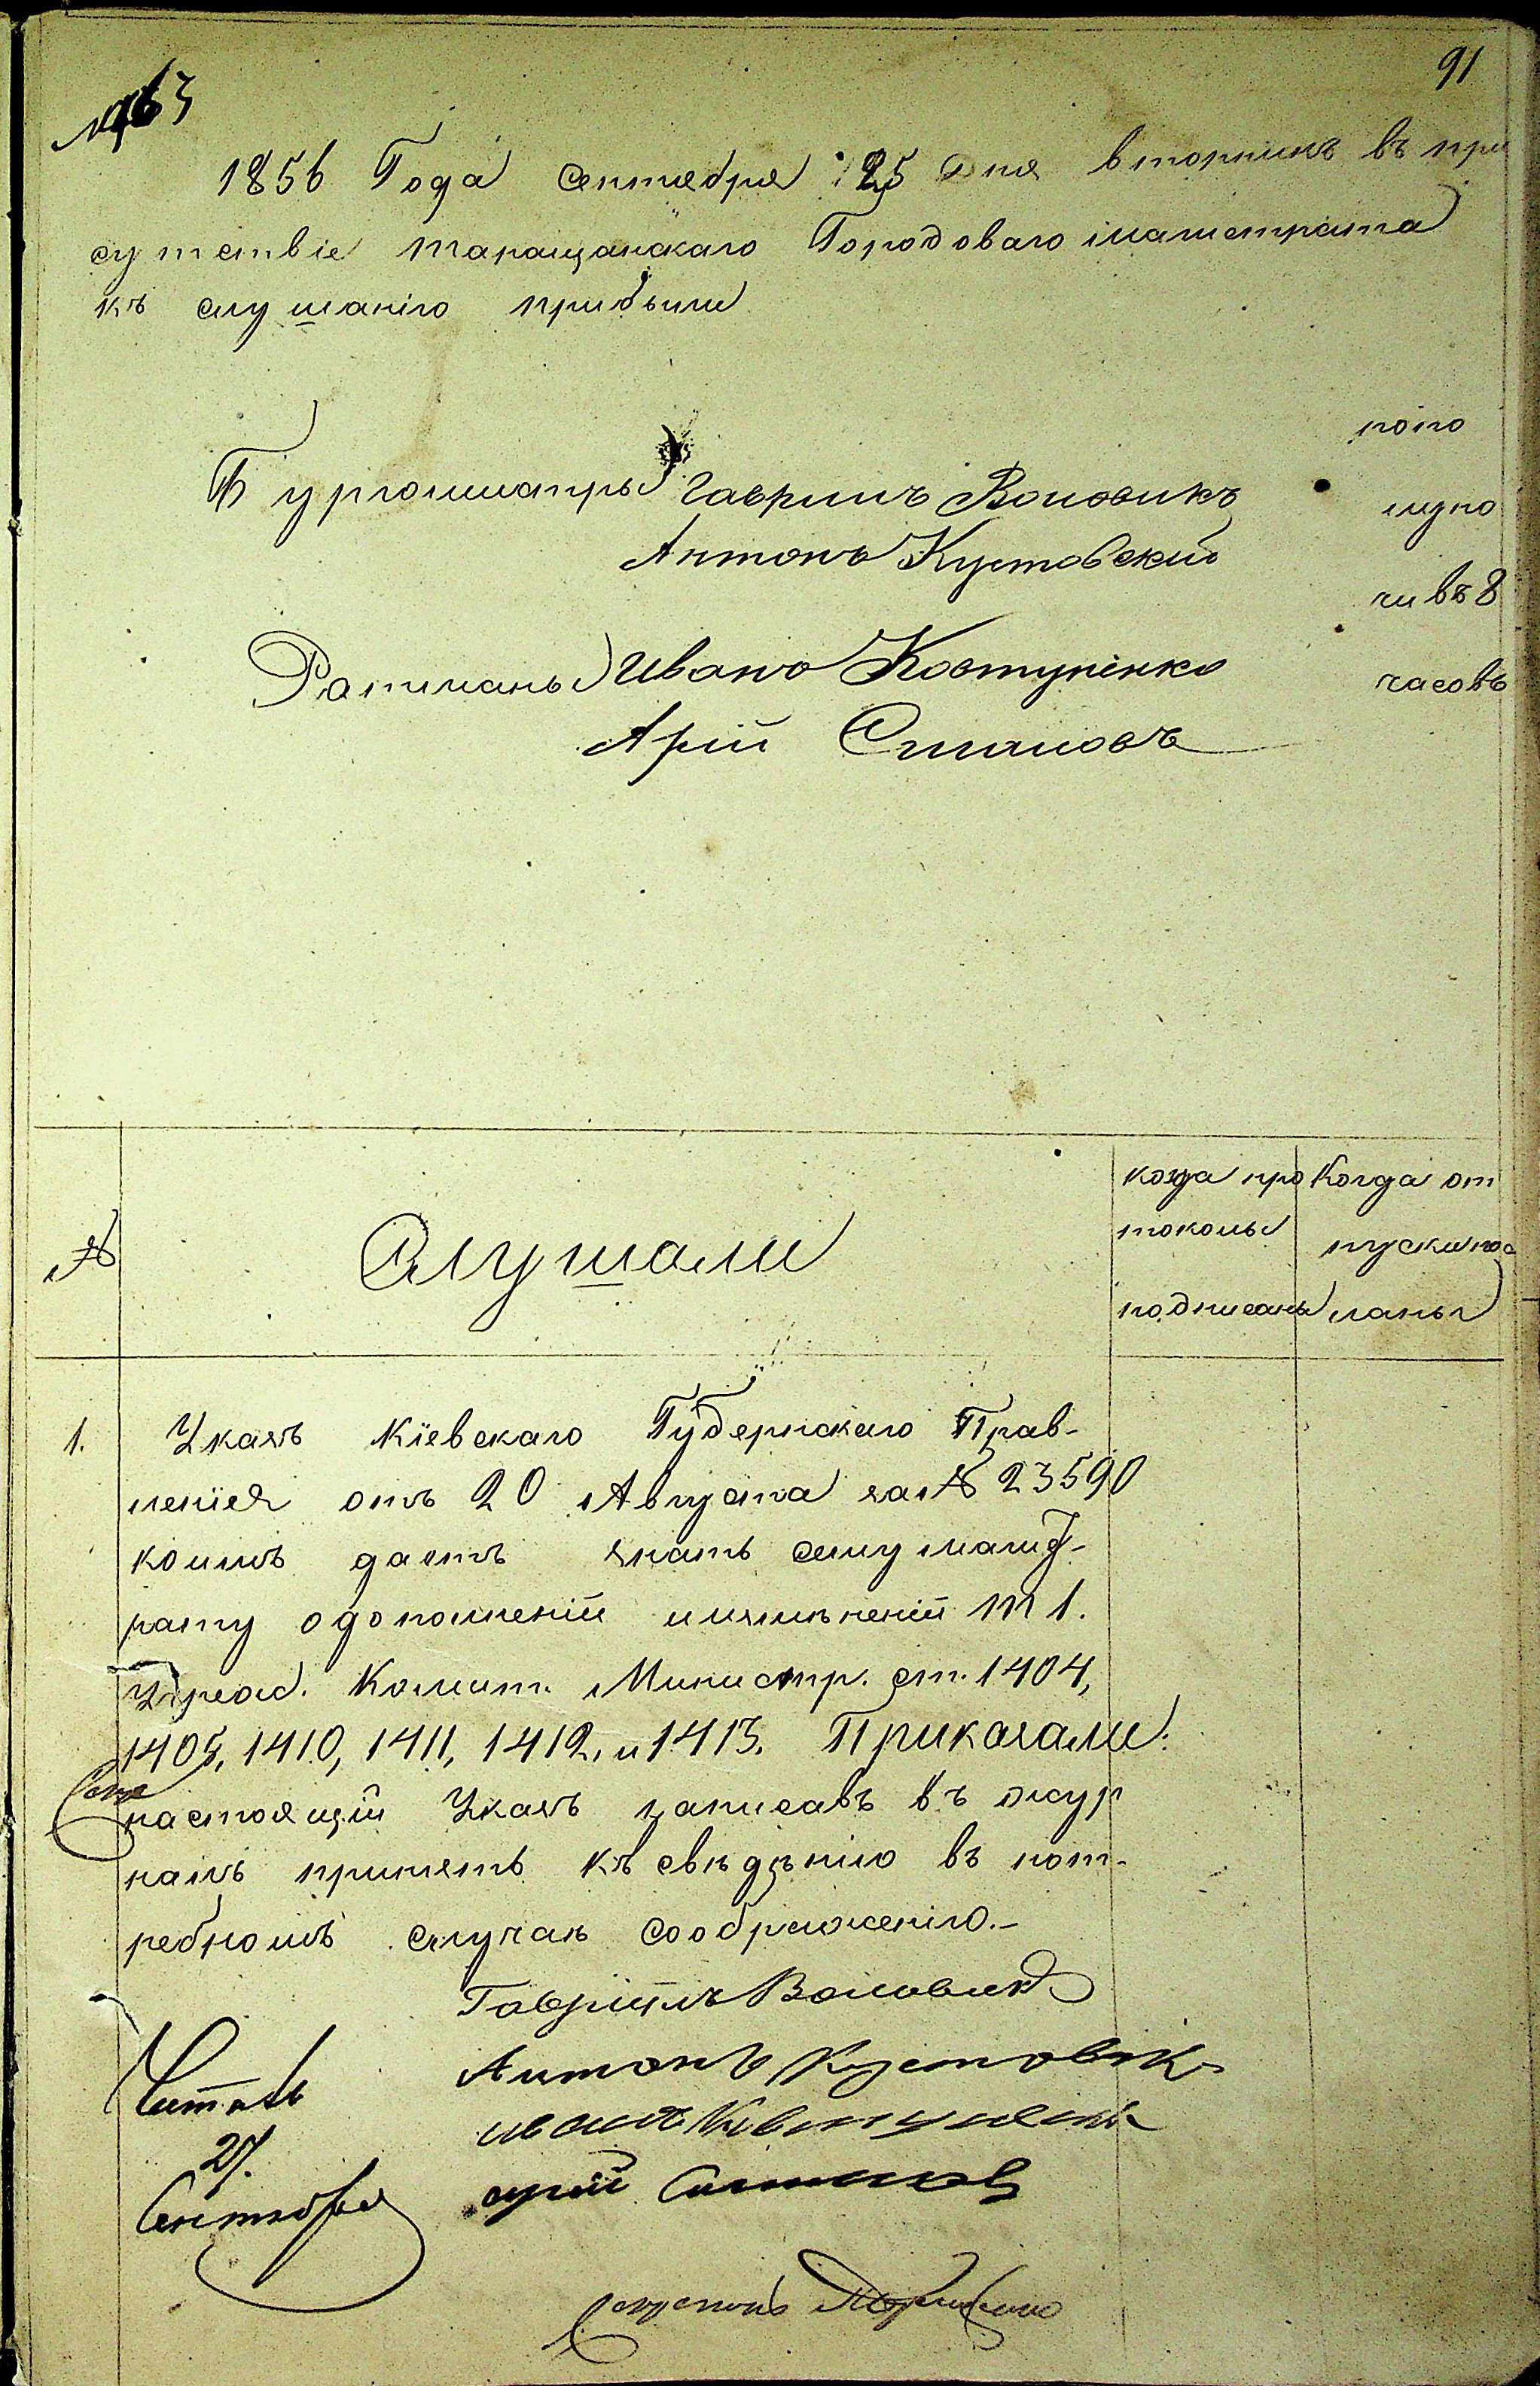 91
№ 63
1856 Года сентября 25 дня вторникъ въ при
сутствіе Таращанскаго Городоваго магистрата
къ слушанію прибыли
Бургомистры Гаврилъ Воловикъ
Антонъ Кустовскій
Ратманы Иванъ Ковтуненко
Арій Симановъ
попо
лудно
чи въ 8
часовъ
№
Слушали
когда про
токолы
подписаны
Когда от
пуски пос
ланы
1. Указъ Кіевскаго Губернскаго Прав-
ленія отъ 20 Августа за № 23590
коимъ даетъ знать сему магист-
рату о дополненіи и измѣненіи т 1.
Учреж. Комит. Министр. ст. 1404,
1405, 1410, 1411, 1412, и 1413. Приказали:
настоящій Указъ записавъ въ жур
налъ принять къ свѣдѣнію въ пот-
ребномъ случаѣ соображенію.-
Гаврiилъ Воловикъ
Антонъ Кустовск
иванъ Ковтуненк
арій Симановъ
Читалъ
27.
Сентября
Секретарь